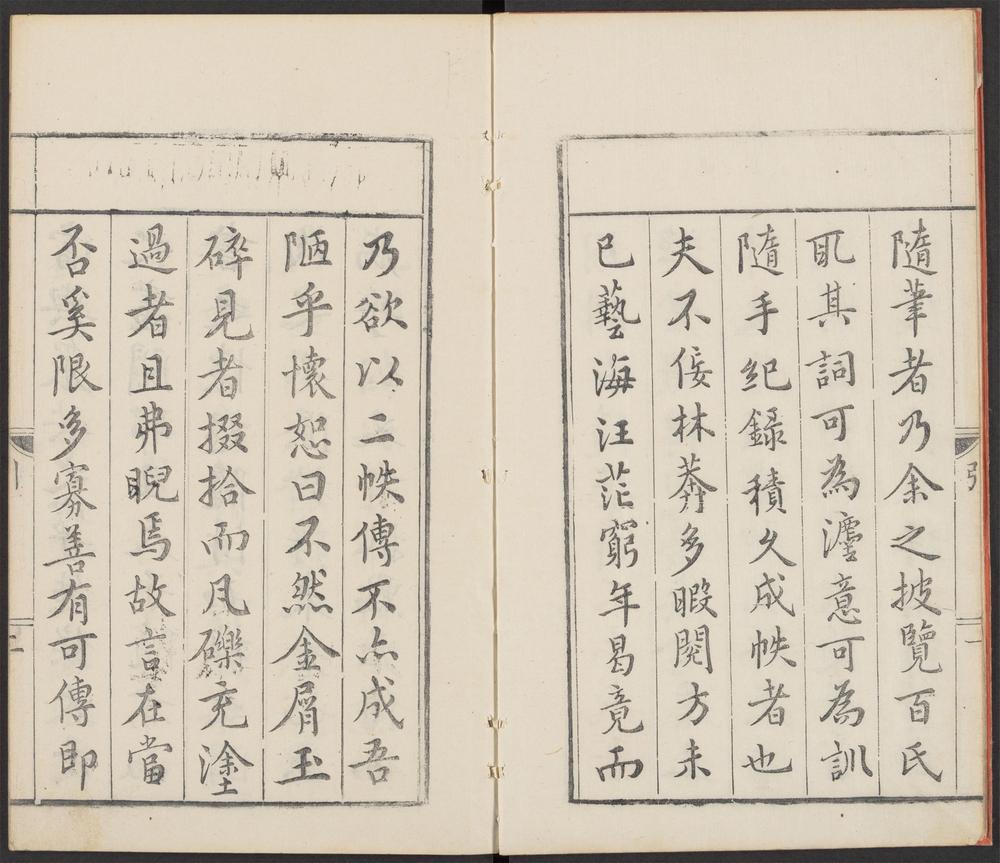 隨筆者乃余之披覽百氏
𠬧其詞可為瀘意可為訓
隨手紀錄積久成帙者也
夫不佞林莽多暇閱方未
已藝海汪茫窮年曷竟而
乃欲以二帙傳不亦成吾
陋乎懷恕曰不然金屑玉
碎見者掇拾而凡礫充塗
過者且弗睨焉故言在當
否奚限多寡善有可傳即
引
一